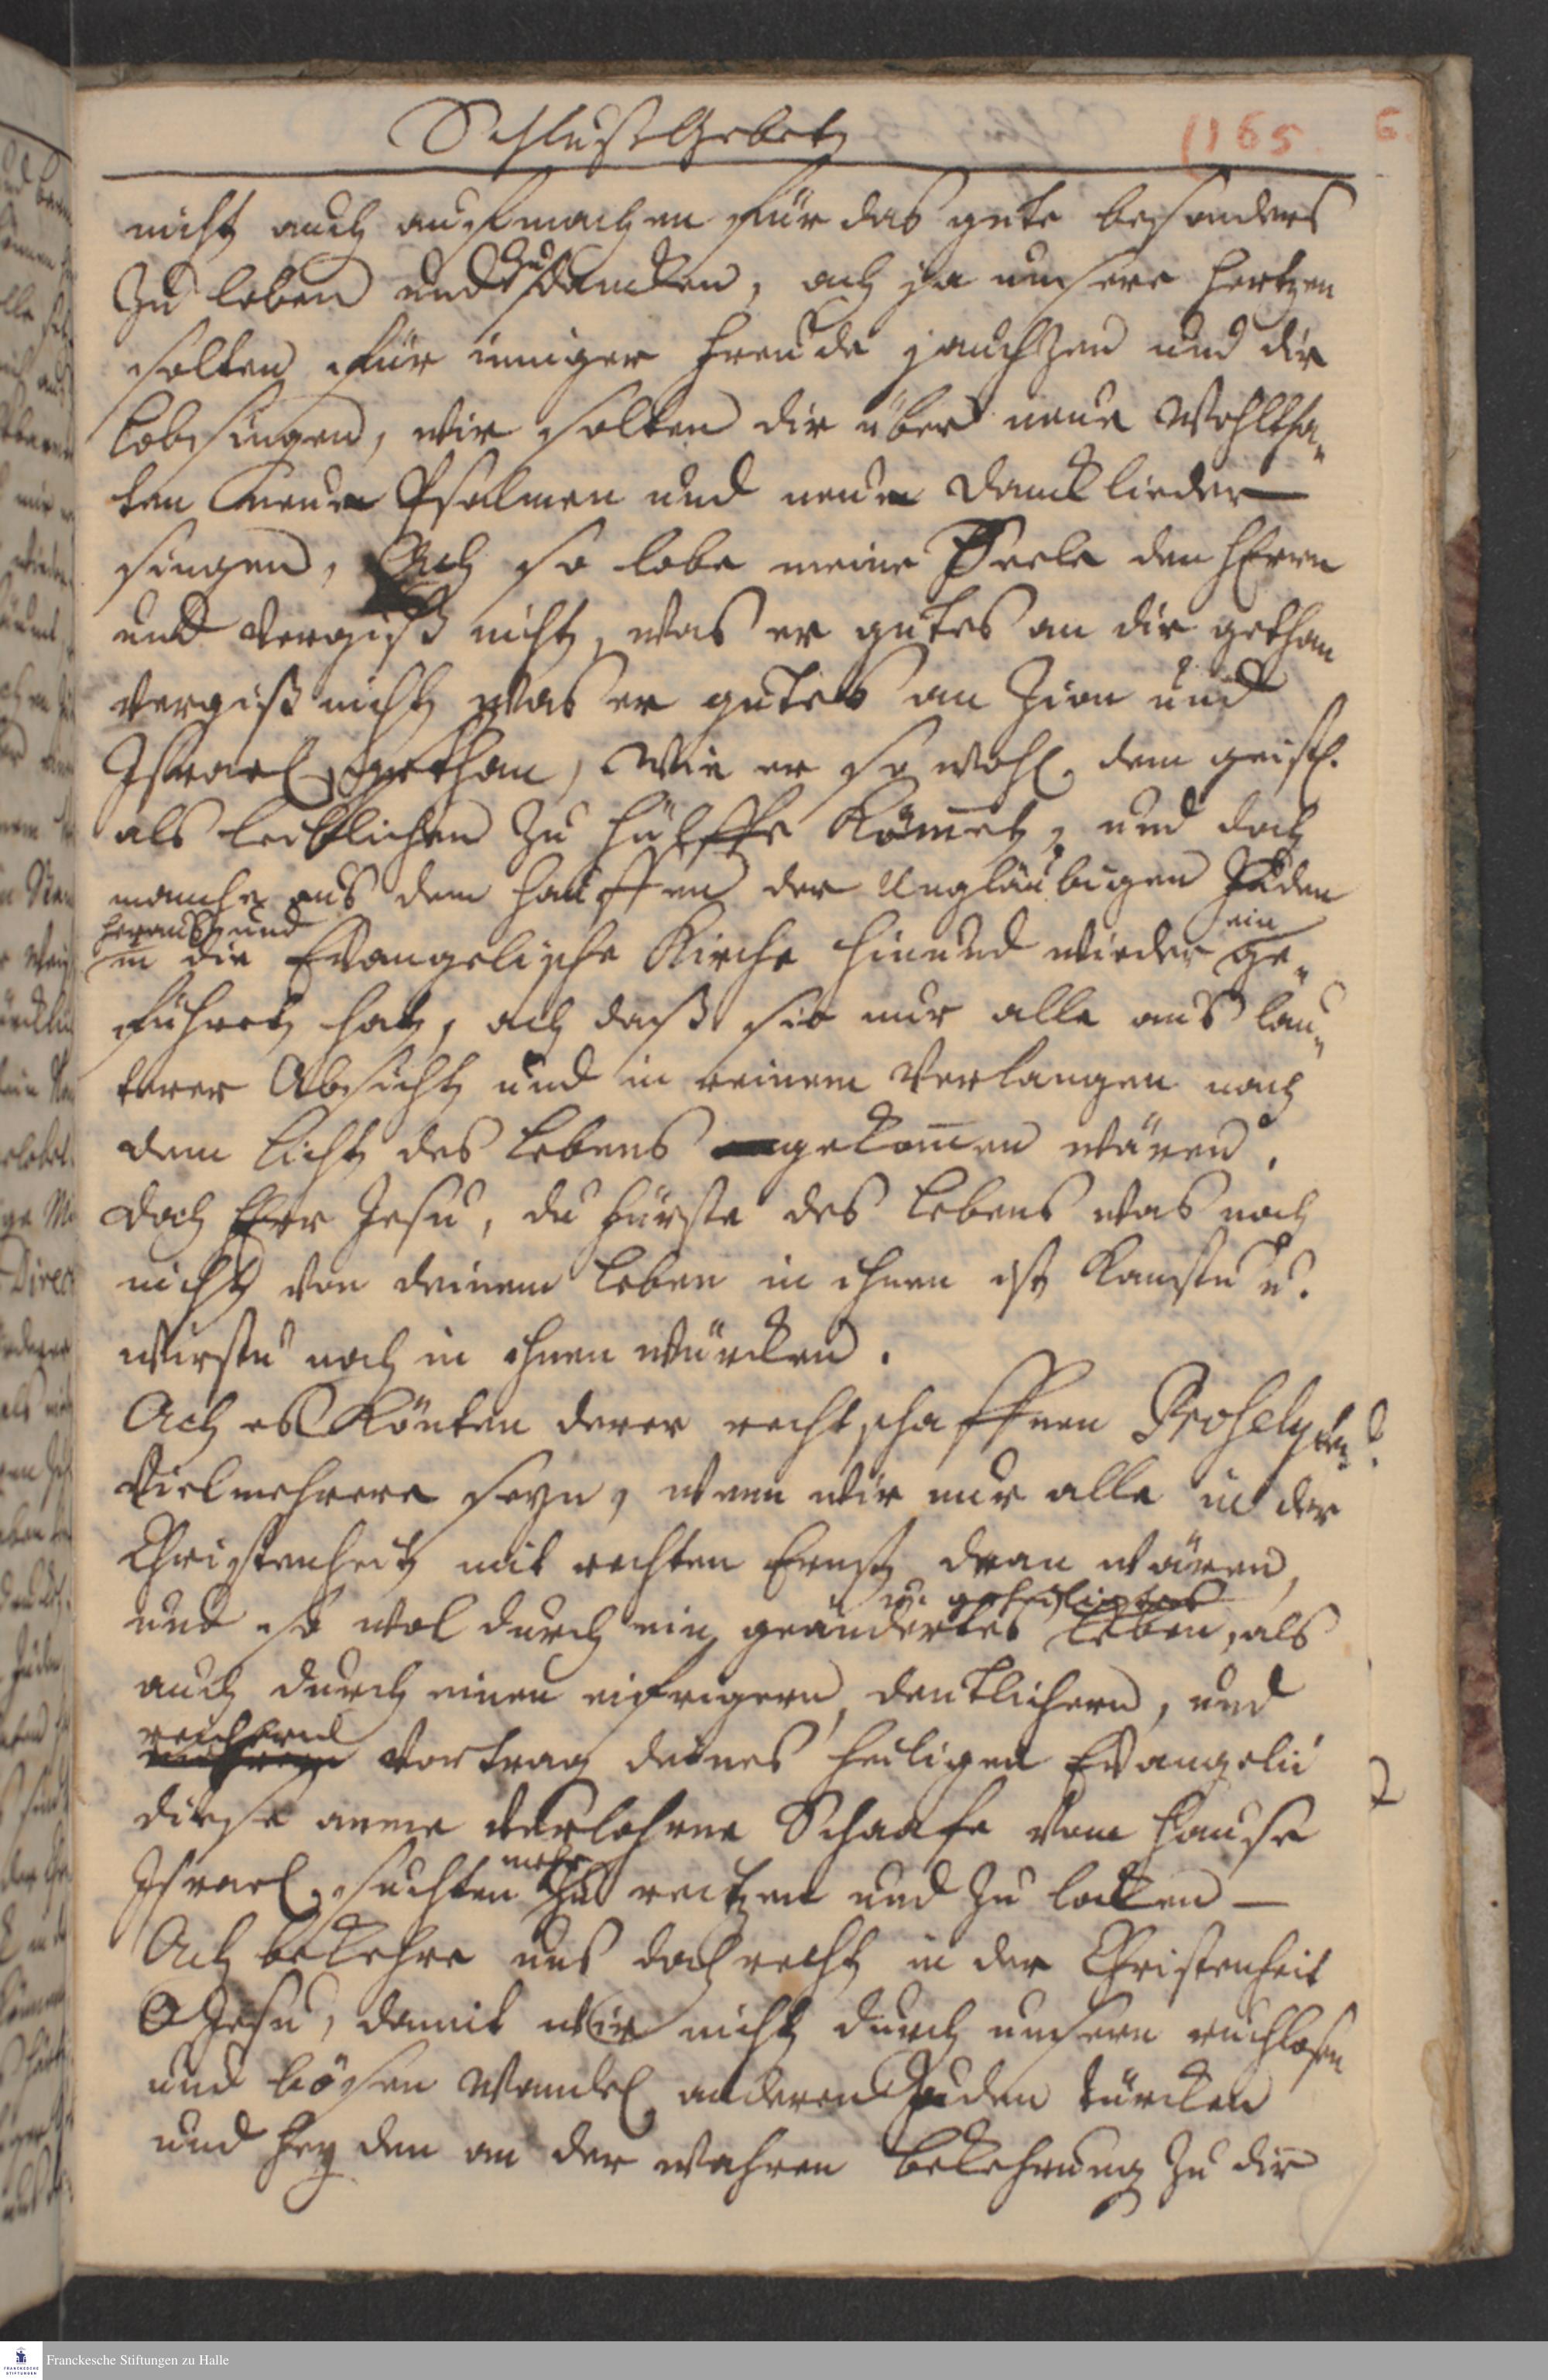 Schluß Gebeth
(165. 6.
nicht auch aufmachen für das gute besonders
zu loben und zu dancken, ach ja unsere Hertzen
solten für inniger Freude jauchzen und dir
lobsingen, wir solten dir über neue Wohltha-
ten neue Psalmen und neue Dancklieder
singen, Ach so lobe meine Seele den HErrn
und vergiß nicht, was er gutes an dir gethan
vergiß nicht was er gutes an Zion und
Israel gethan, wie er so wohl dem geistl.
als leiblichen zu hülffe kömmet, und doch
manche aus dem hauffen der Ungläubigen Juden
heraus und
in die Evangelische Kirche hin und wieder ein ge-
führet hat, ach daß sie nur alle aus lau-
terer Absicht und in reinem Verlangen nach
dem Licht des Lebens gekommen wären.
doch HErr Jesu, du Fürste des Lebens was noch
nicht von deinem Leben in ihnen ist kanstu u.
wirstu noch in ihnen würcken.
Ach es könten derer rechtschaffnen Proselyten
vielmehrere seyn, wenn wir nur alle in der
Christenheit mit rechten Ernst dran wären,
u. geheiligtes
und so wol durch ein geändertes Leben, als
auch durch einen eifrigern, deutlichern, und
reichern
Vortrag deines heiligen Evangelii
diese arme verlohrne Schaafe vom Hause
mehr
Israel suchten zu reitzen und zu locken –
Ach bekehre uns doch recht in der Christenheit
O Jesu, damit wir nicht durch unsern ruchlosen
und bösen Wandel anderen Juden türcken
und Heyden an der wahren Bekehrung zu dir
Franckesche Stiftungen zu Halle